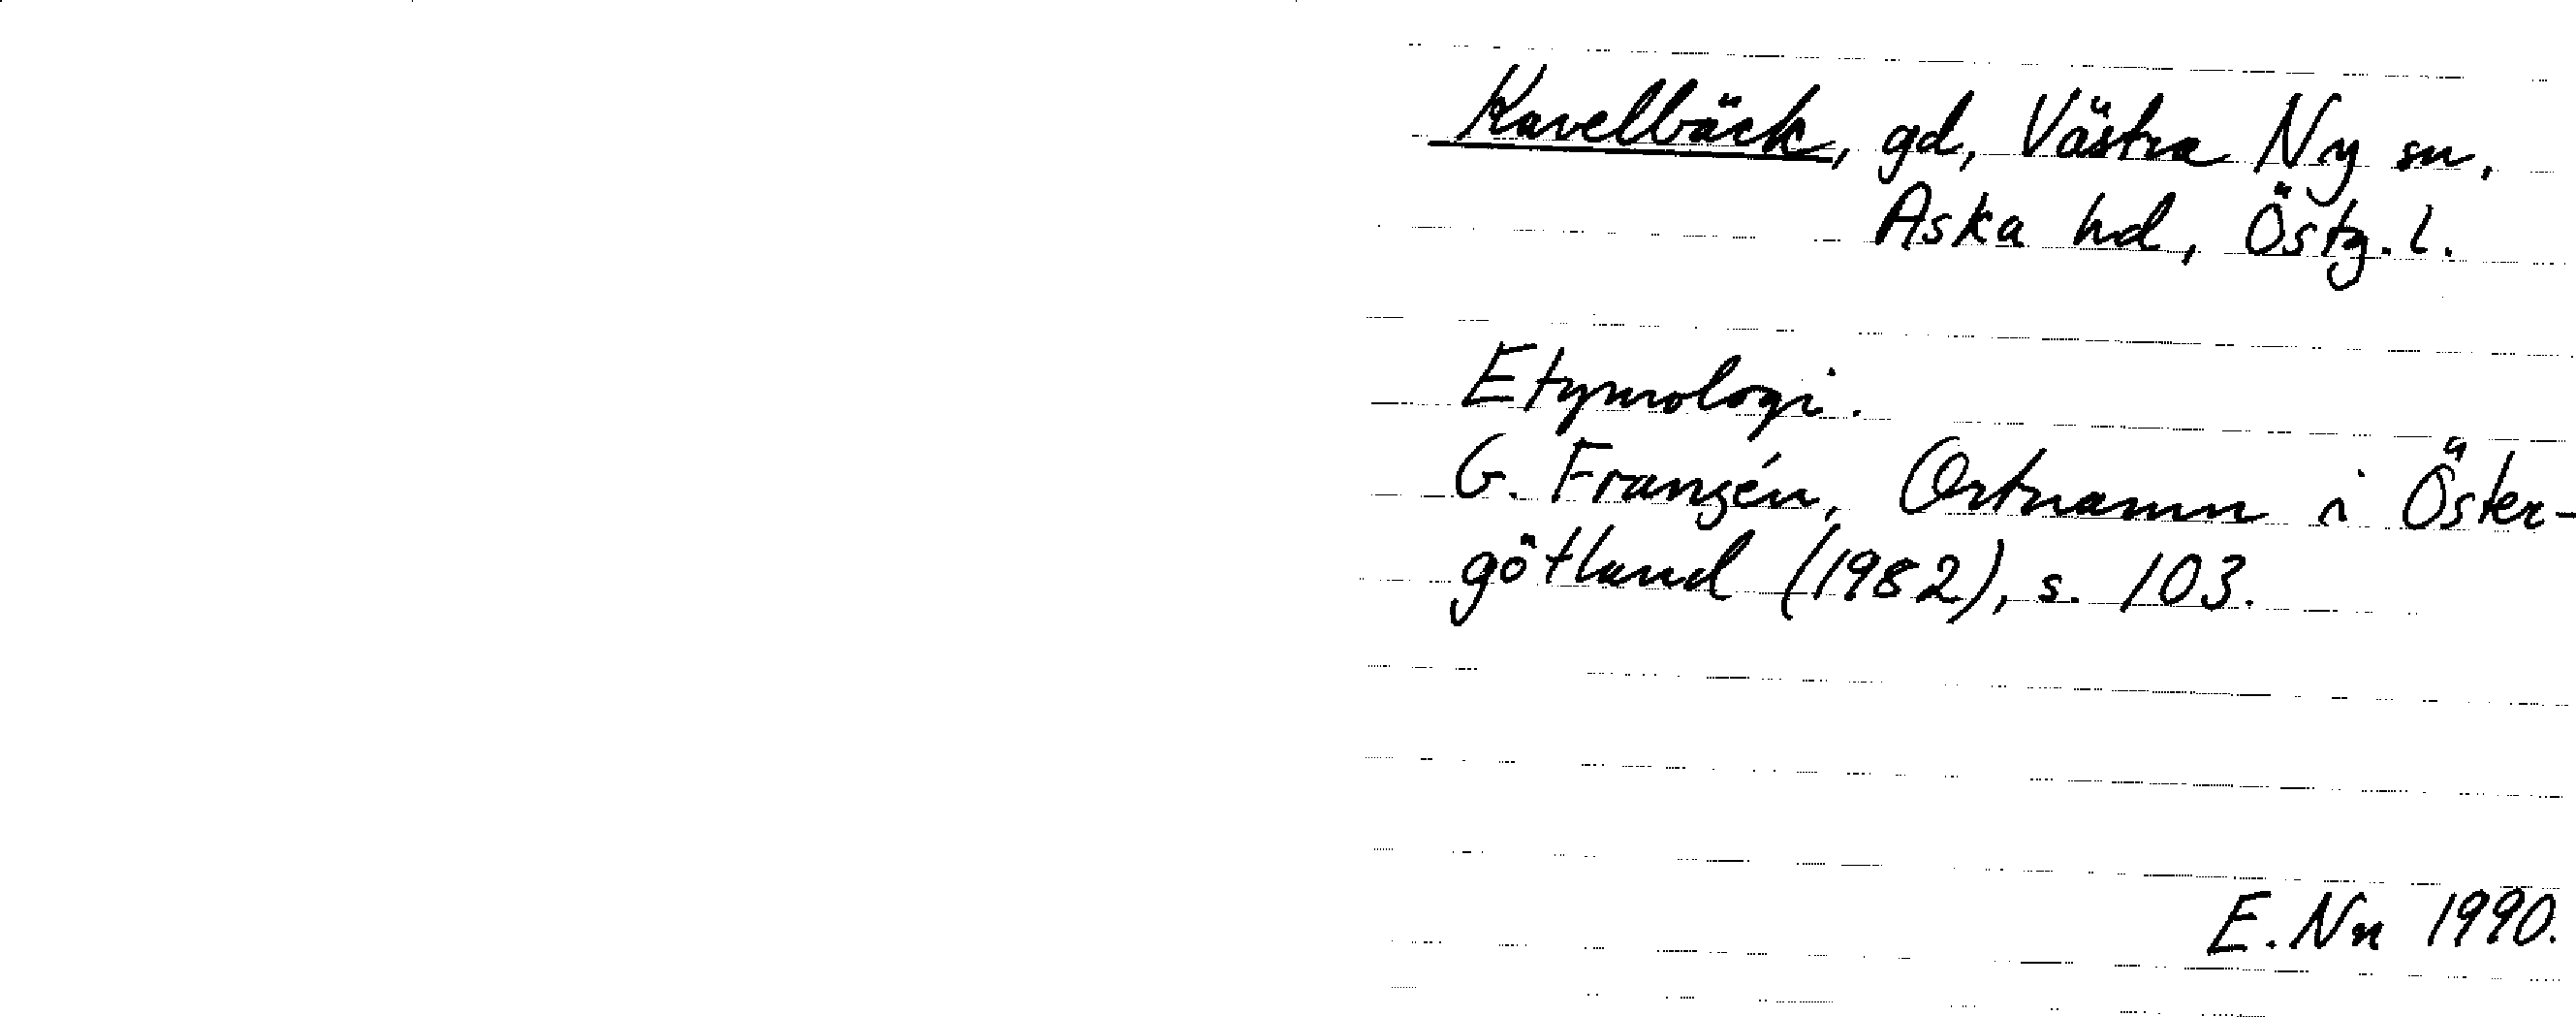 Kavelbäck, gd, Västra Ny sn,
Aska hd, Östg. l.
Etymologi.
G. Franzén, Ortnamn i Öster-
götland (1982), s. 103.
E. Nn 1990.